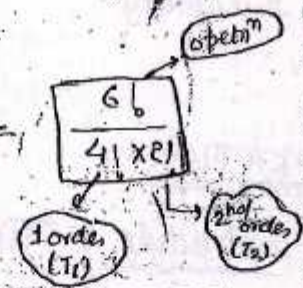 opetn^n
6!
4! × 2!
1 order
(T₁)
2nd order
(T₂)